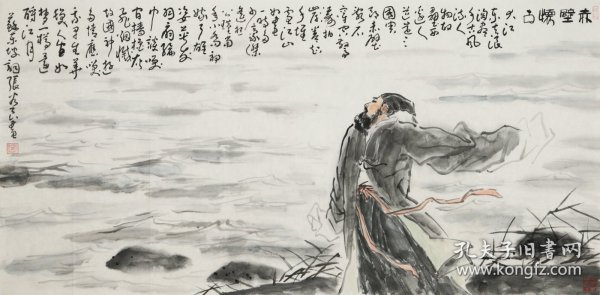 赤壁懷古
大江
東去浪
淘盡
千古風
流人
物故
壘西
邊人
道是三
國周
郎赤壁
亂石
穿空驚
濤拍
岸卷起
千堆
雪江山
如畫
一時多
少豪傑
遙想
公瑾當
年小喬初
嫁了雄
姿英發
羽扇綸
巾談笑
間檣櫓灰
飛烟滅
故國神遊
多情應笑
我早生華
髮人生如
夢一樽還
酹江月
蘇東坡詞張
孔夫子旧书网
www.kongfz.com